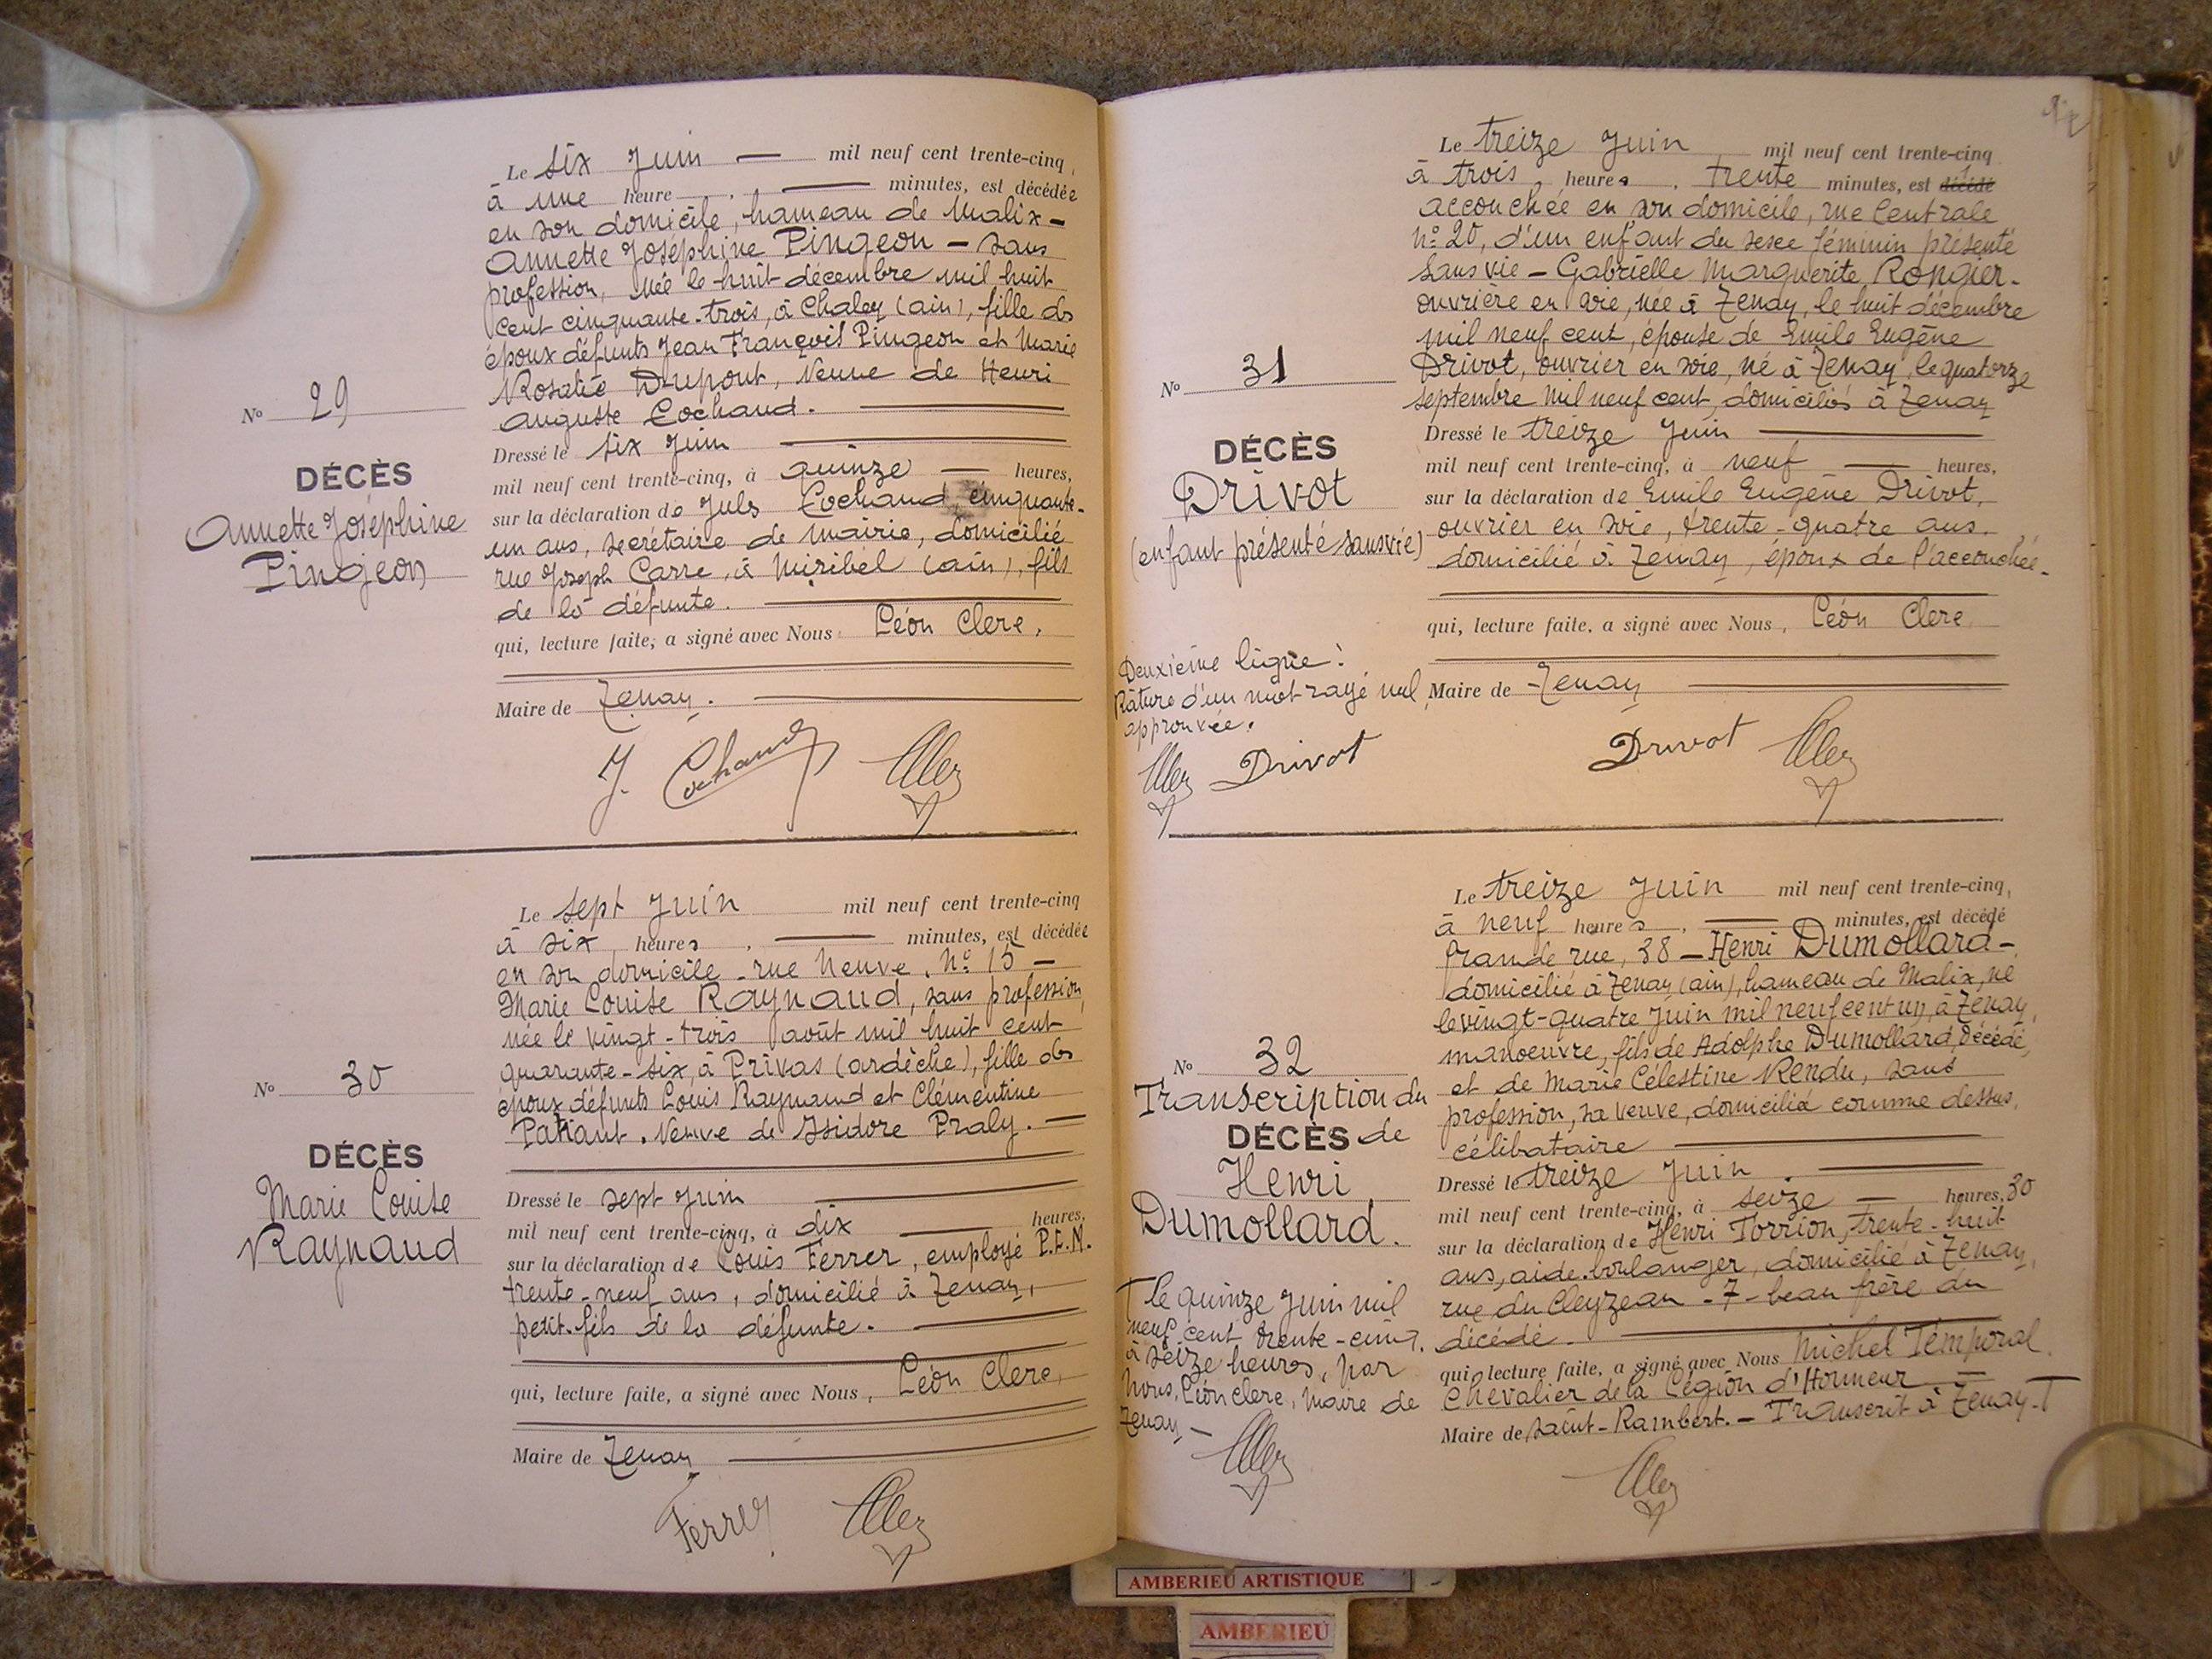 Le six Juin — mil neuf cent trente-cinq,
à une heure . — minutes, est décédée
en son domicile, hameau de Malix -
Annette Joséphine Pingeon - sans
profession, née le huit décembre mil huit
cent cinquante-trois, à Chaley (ain), fille de
époux défunts Jean François Pingeon et Marie
Rosalie Dupont, Veuve de Henri
Auguste Cochand. —
Dressé le six Juin —
mil neuf cent trente-cinq, à quinze — heures,
sur la déclaration de Jules Cochand, cinquante-
un ans, secrétaire de mairie, domicilié
rue Joseph Carre, à Miribel (ain), fils
de la défunte. —
qui, lecture faite, a signé avec Nous Léon Clerc,
Maire de Tenay. —
N° 29
DÉCÈS
Annette Joséphine
Pingeon
J. Cochand
Le sept Juin mil neuf cent trente-cinq
à six heures . — minutes, est décédée
en son domicile - rue Neuve, N° 15 -
Marie Louise Raynaud, sans profession,
née le vingt-trois août mil huit cent
quarante-six, à Privas (ardèche), fille des
époux défunts Louis Raynaud et Clémentine
Veuve de Isidore Praly. —
Dressé le sept Juin —
mil neuf cent trente-cinq, à dix — heures,
sur la déclaration de Louis Ferrer, employé P.L.M.
trente-neuf ans, domicilié à Tenay,
petit-fils de la défunte. —
qui, lecture faite, a signé avec Nous, Léon Clerc,
Maire de Tenay —
N° 30
DÉCÈS
Marie Louise
Raynaud
Ferrer
Le treize Juin mil neuf cent trente-cinq
à trois heures . trente minutes, est décédé
accouchée en son domicile, rue Centrale
N° 20, d'un enfant du sexe féminin présenté
sans vie - Gabrielle Marguerite Rongier -
ouvrière en soie, née à Tenay, le huit décembre
mil neuf cent, épouse de Emile Eugène
Drivot, ouvrier en soie, né à Tenay, le quatorze
septembre mil neuf cent, domiciliés à Tenay
Dressé le treize Juin —
mil neuf cent trente-cinq, à neuf — heures,
sur la déclaration de Emile Eugène Drivot,
ouvrier en soie, trente-quatre ans.
domicilié à Tenay, époux de l'accouchée.
qui, lecture faite, a signé avec Nous, Léon Clerc
Maire de Tenay —
N° 31
DÉCÈS
Drivot
(enfant présenté sans vie)
Deuxième ligne :
Rature d'un mot rayé nul
approuvée.
Drivot
Drivot
Le treize Juin mil neuf cent trente-cinq,
à neuf heures . — minutes, est décédé
Grande rue, 38 - Henri Dumollard -
domicilié à Tenay (ain), hameau de Malix, né
le vingt-quatre Juin mil neuf cent un, à Tenay,
manoeuvre, fils de Adolphe Dumollard, décédé,
et de Marie Célestine Rendu, sans
profession, sa veuve, domiciliée comme dessus,
célibataire —
Dressé le treize Juin —
mil neuf cent trente-cinq, à seize — heures, 30
sur la déclaration de Henri Torrion, trente-huit
ans, aide-boulanger, domicilié à Tenay,
rue du Cleyzeau - 7 - beau frère du
décédé. —
qui, lecture faite, a signé avec Nous Michel Temporal,
Chevalier de la Légion d'Honneur —
Maire de Saint-Rambert. - Transcrit à Tenay. T
N° 32
Transcription du
DÉCÈS de
Henri
Dumollard.
T le quinze Juin mil
neuf cent trente-cinq,
à seize heures, par
Nous, Léon Clerc, Maire de
Tenay -
AMBERIEU ARTISTIQUE
AMBERIEU